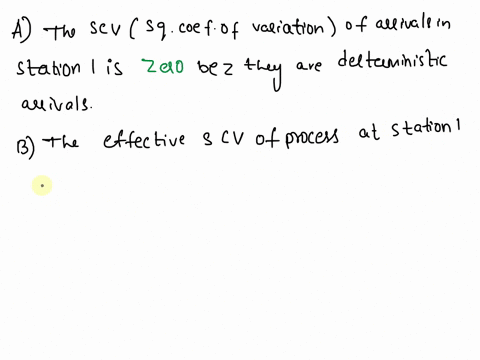 A) The SCV (Sq. coef. of variation) of arrivals in
station 1 is Zero bcz they are delterministic
arrivals.
B) The effective SCV of process at station 1